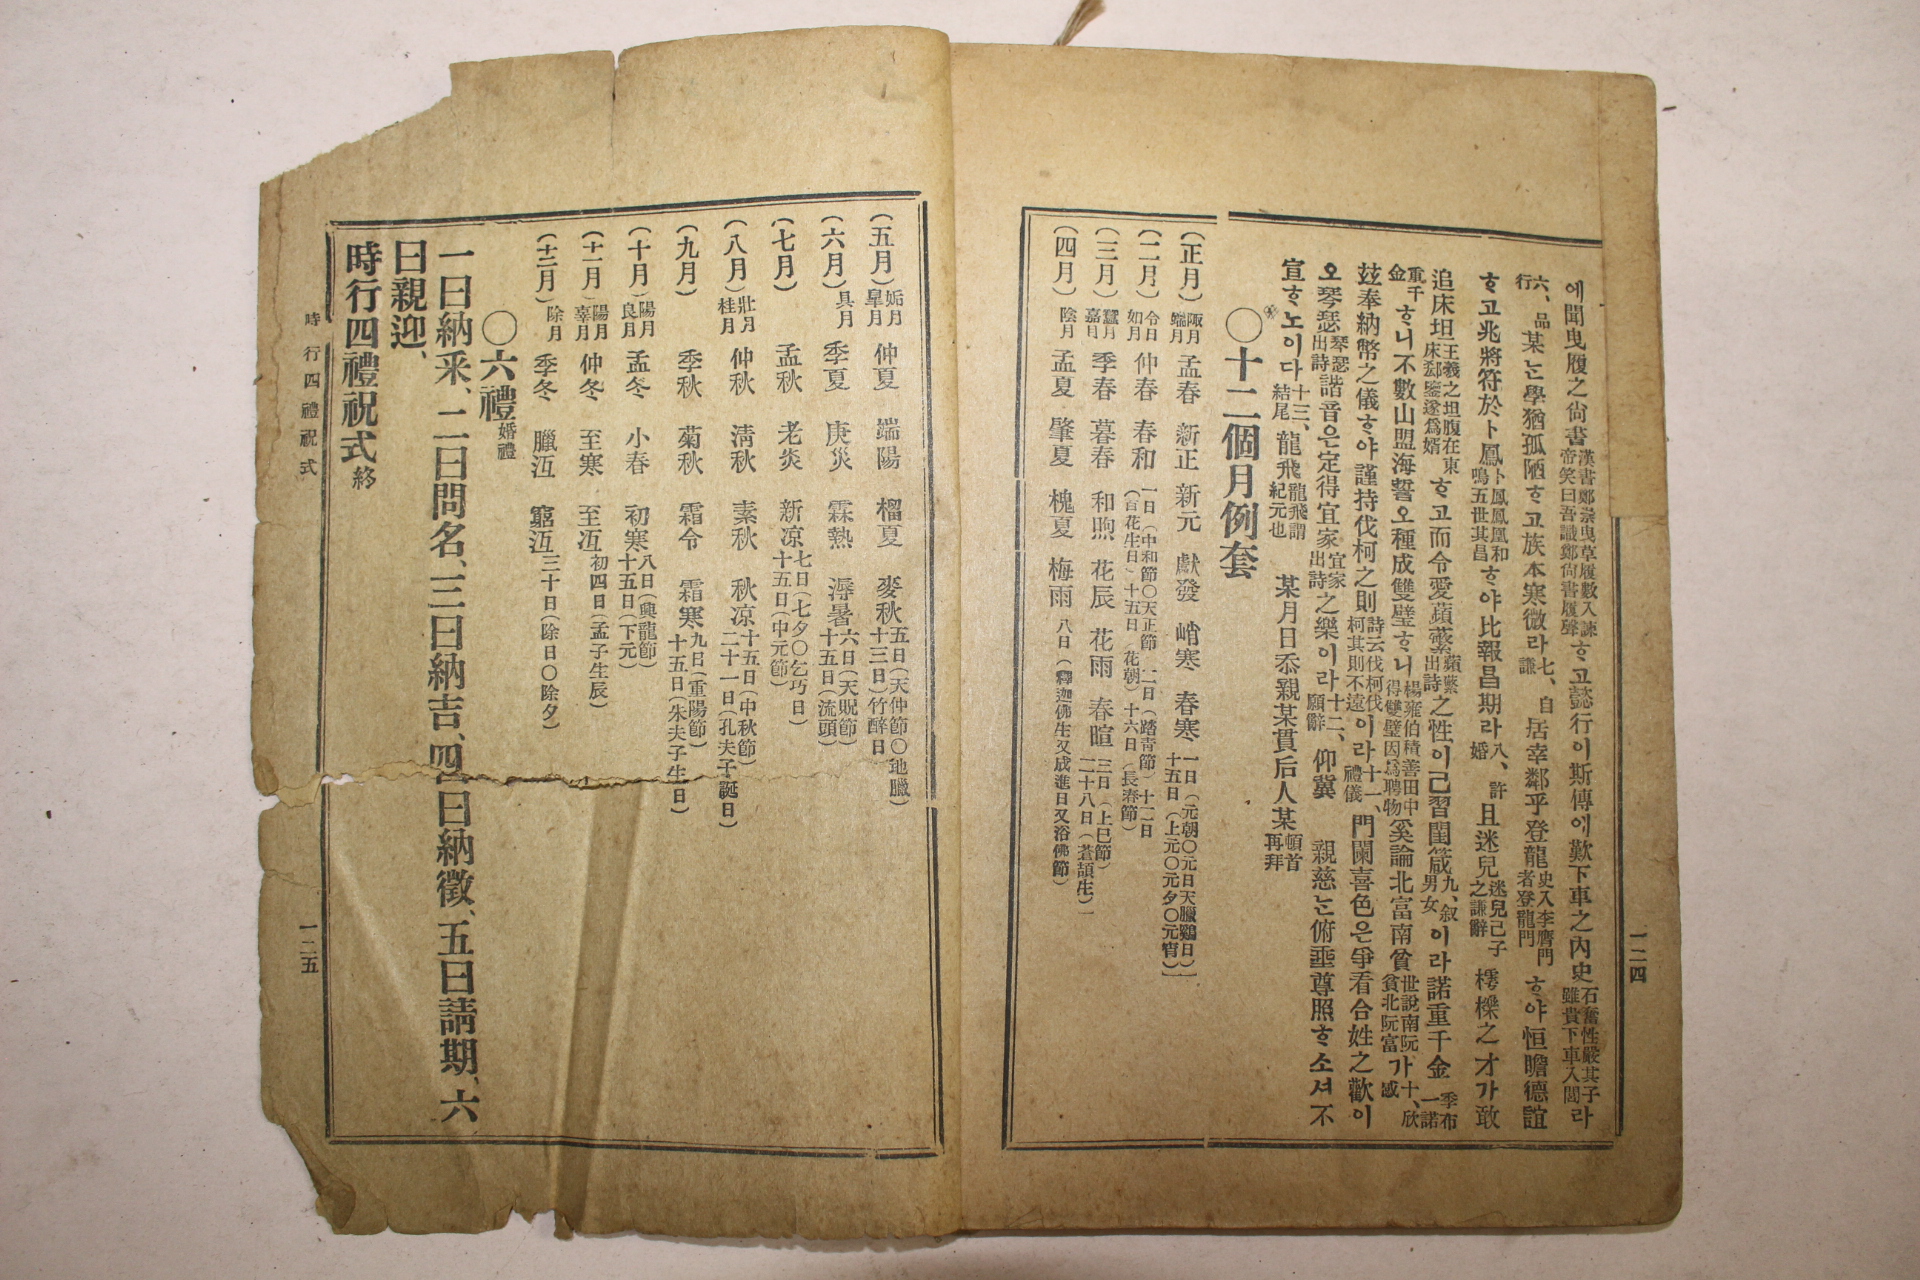 에聞曳履之尙書漢書鄭崇曳草履數入諫帝笑曰吾識鄭尙書履聲ᄒᆞ고懿行이斯傳에歎下車之內史石奮性嚴其子雖貴下車入閭라
六、品行 某는學猶孤陋ᄒᆞ고族本寒微라七、自謙 居幸鄰乎登龍史入李膺門者登龍門ᄒᆞ야恒瞻德誼
ᄒᆞ고兆將符於卜鳳卜鳳鳳凰和鳴五世其昌ᄒᆞ야比報昌期라八、許婚 且迷兒迷兒己子之謙辭 樗櫟之才가敢
追床坦王羲之坦腹在東床郄鑒遂爲婿ᄒᆞ고而令愛蘋蘩蘋蘩出詩之性이己習閨箴九、叙男女이라諾重千金季布一諾
重千金ᄒᆞ니不數山盟海誓오種成雙璧ᄒᆞ니楊雍伯積善田中得雙璧因爲聘物奚論北富南貧世說南阮貧北阮富가十、欣感
玆奉納幣之儀ᄒᆞ야謹持伐柯之則詩云伐柯伐柯其則不遠이라十一、禮儀 門闌喜色은爭看合姓之歡이
오琴瑟琴瑟出詩諧音은定得宜家宜家出詩之樂이라十二、願辭 仰冀 親慈는俯垂尊照ᄒᆞ소셔不
宣ᄒᆞ노이다十三、結尾 龍飛龍飛謂紀元也 某月日忝親某貫后人某頓首再拜
〇十二個月例套
(正月)陬月端月 孟春 新正 新元 獻發 峭寒 春寒 一日(元朝〇元日天臘鷄日)十五日(上元〇元夕〇元宵)
(二月)令日如月 仲春 春和 一日(中和節〇天正節 二日(踏靑節)十二日(百花生日)十五日(花朝)十六日(長春節)
(三月)蠶月嘉月 季春 暮春 和煦 花辰 花雨 春暄 三日(上巳節)二十八日(蒼頡生)
(四月)陰月 孟夏 肇夏 槐夏 梅雨 八日(釋迦佛生又成進日又浴佛節)
一二四
(五月)姤月皐月 仲夏 端陽 榴夏 麥秋 五日(天仲節〇地臘)十三日(竹醉日)
(六月)具月 季夏 庚炎 霖熱 溽暑 六日(天貺節)十五日(流頭)
(七月) 孟秋 老炎 新凉 七日(七夕〇乞巧日)十五日(中元節)
(八月)壯月桂月 仲秋 淸秋 素秋 秋凉 十五日(中秋節)二十一日(孔夫子誕日)
(九月) 季秋 菊秋 霜令 霜寒 九日(重陽節)十五日(朱夫子生日)
(十月)陽月良月 孟冬 小春 初寒 八日(興龍節)十五日(下元)
(十一月)陽月辜月 仲冬 至寒 至冱 初四日(孟子生辰)
(十二月)除月 季冬 臘冱 窮冱 三十日(除日〇除夕)
〇六禮婚禮
一曰納采、二曰問名、三曰納吉、四曰納徵、五曰請期、六
曰親迎、
時行四禮祝式終
時行四禮祝式
一二五